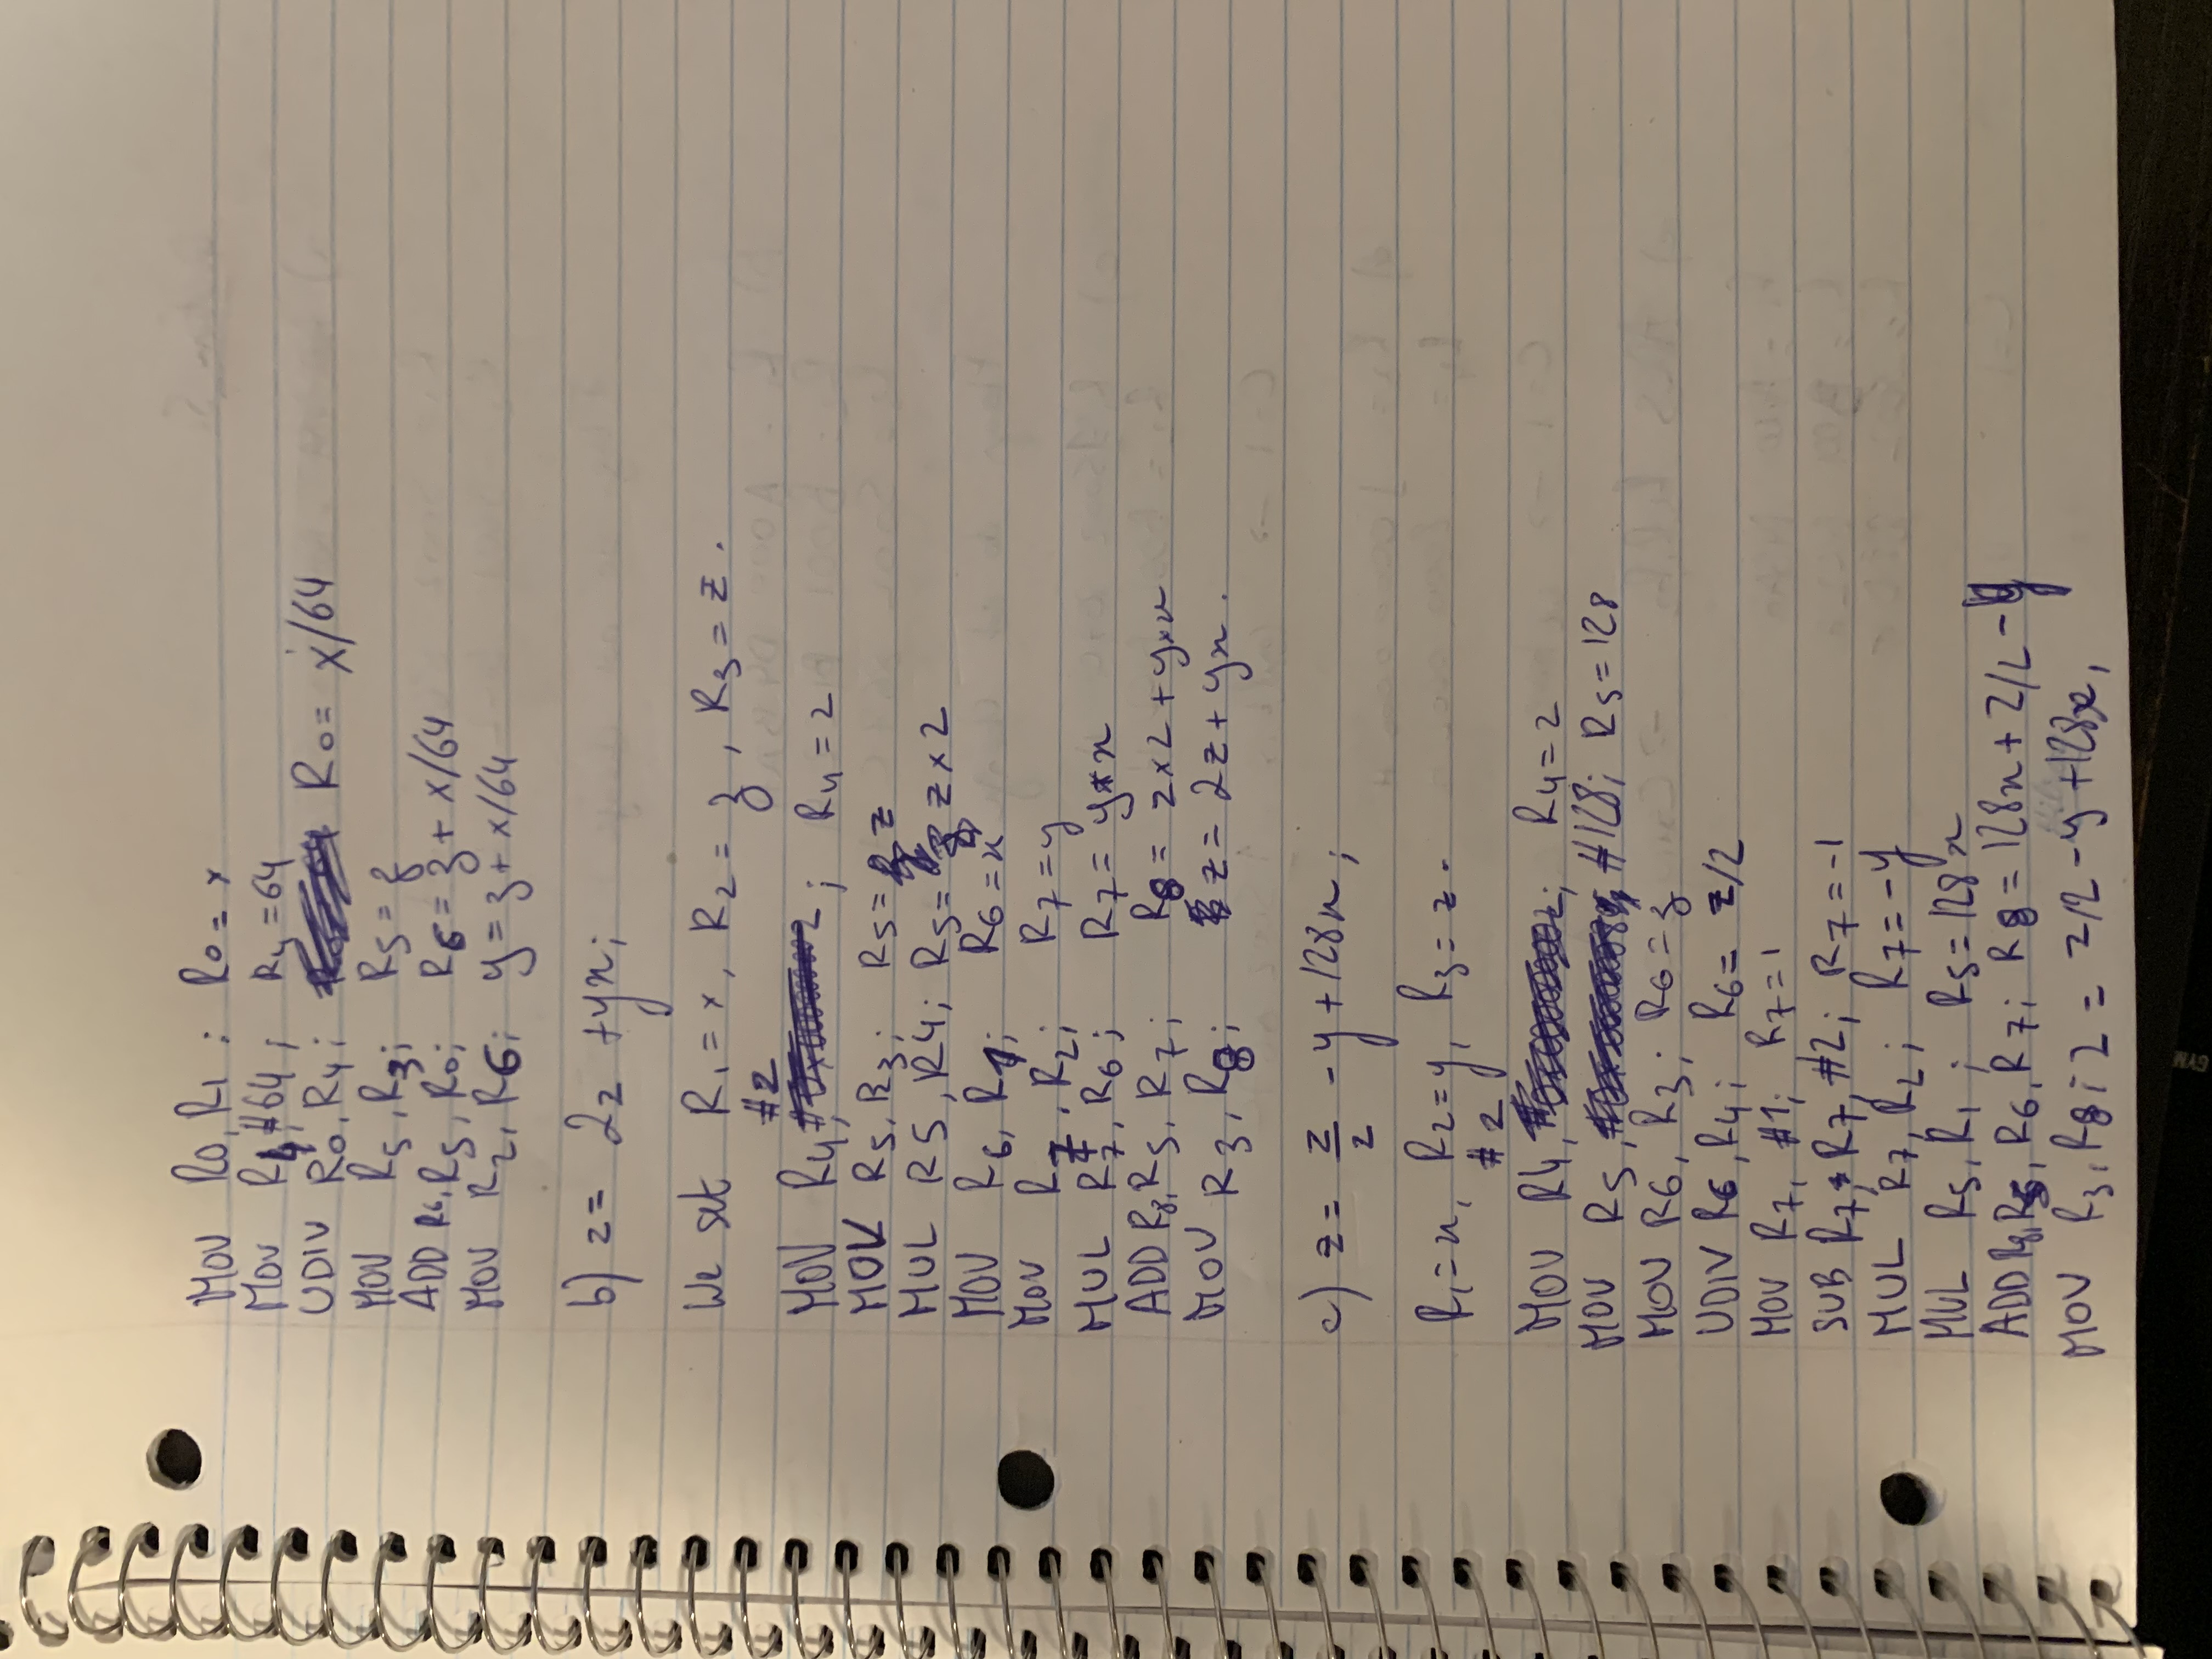 MOV R0, R1 ; R0 = x
MOV R4, #64 ; R4 = 64
UDIV R0, R4 ; R0 = x/64
MOV R5, R3; R5 = z
ADD R6, R5, R0; R6 = z + x/64
MOV R2, R6; y = z + x/64
b) z = 2z + yx;
We set R1 = x, R2 = z, R3 = z.
#2
MOV R4, ; R4 = 2
MOV R5, R3; R5 = z
MUL R5, R4; R5 = z x 2
MOV R6, R1; R6 = x
MOV R7, R2; R7 = y
MUL R7, R6; R7 = y*x
ADD R8, R5, R7; R8 = z x 2 + y x x
MOV R3, R8; z = 2z + yx.
c) z = z/2 - y + 128x;
R1 = x, R2 = y, R3 = z.
#2
MOV R4, ; R4 = 2
MOV R5, #128; R5 = 128
MOV R6, R3; R6 = z
UDIV R6, R4; R6 = z/2
MOV R7, #1; R7 = 1
SUB R7, R7, #2; R7 = -1
MUL R7, R2; R7 = -y
MUL R5, R1; R5 = 128x
ADD R8, R5, R6, R7; R8 = 128x + z/2 - y
MOV R3, R8; z = z/2 - y + 128x,